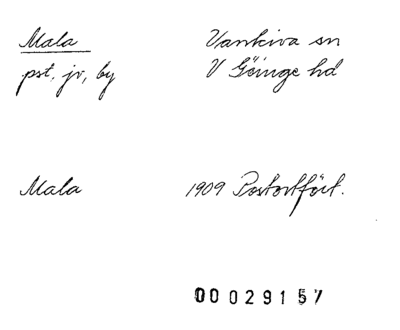 Mala Vankiva sn
pst, jv, by V Göinge hd
Mala 1909 Postortfört.
00029157